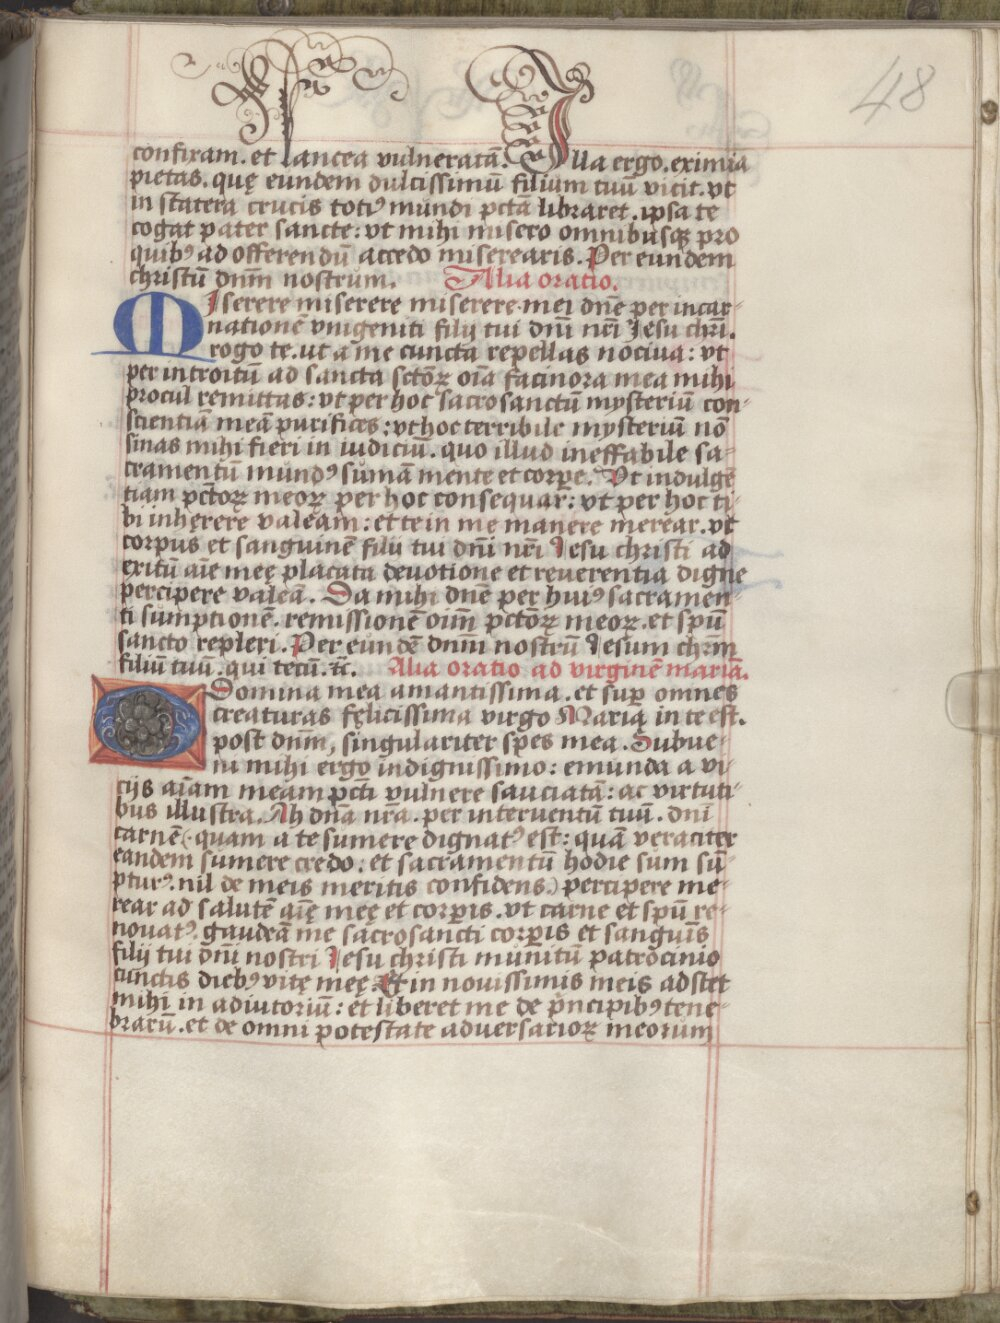 48
confixam. et lancea vulneratā. Illa ergo. eximia
pietas. quę eundem dulcissimū filium tuū vicit. vt
in statera crucis totiꝰ mundi pctā libraret. ipsa te
cogat pater sancte: vt mihi misero omnibusqꝫ pro
quibꝰ ad offerendū accedo miserearis. Per eundem
christū dnm̄ nostrum. Alia oratio.
MIserere miserere miserere mei dnē per incar-
nationē vnigeniti filij tui dnī nr̄i Jesu chrī.
rogo te. ut a me cuncta repellas nociua: vt
per introitum ad sancta sctōꝝ oīa facinora mea mihi
procul remittas: vt per hoc sacrosanctū mysteriū con-
scientiā meā purifices: vt hoc terribile mysteriū nō
sinas mihi fieri in iudiciū. quo illud ineffabile sa-
cramentū mundꝰ sumā mente et corpꝑe. Vt indulgē
tiam pctōꝝ meoꝝ per hoc consequar: vt per hoc ti-
bi inhęrere valeam: et te in me manere merear. vt
corpus et sanguinē filii tui dnī nr̄i Jesu christi ad
exitū aīe meę placata deuotione et reuerentia digne
percipere valeā. Da mihi dnē per huiꝰ sacramen-
ti sumptionē. remissionē oīm̄ pctōꝝ meoꝝ. et spū
sancto repleri. Per eundē dnm̄ nostrū Jesum chrm̄
filiū tuū. qui tecū. ⁊c. Alia oratio ad virginē mariā.
O Domina mea amantissima. et sup̄ omnes
creaturas fęlicissima virgo Maria. in te est.
post dnm̄, singulariter spes mea. Subue-
ni mihi ergo indignissimo: emunda a vi-
cijs aīam meam pctī vulnere sauciatā: ac virtuti-
bus illustra. Ah dnā nr̄a. per interventū tuū. dnī
carnē (quam a te sumere dignatꝰ est: quā veraciter
eandem sumere credo: et sacramentū hodie sum sū-
pturꝰ. nil de meis meritis confidens.) percipere me-
rear ad salutē aīę meę et corpꝑis. vt carne et spū re-
nouatꝰ. gaudeā me sacrosancti corpꝑis et sanguīs
filij tui dnī nostri Jesu christi munitū patrocinio
cunctis diebꝰ vitę meę. Et in novissimis meis adstet
mihi in adiutoriū: et liberet me de p̄ncipibꝰ tene-
brarū. et de omni potestate adversarioꝝ meorum